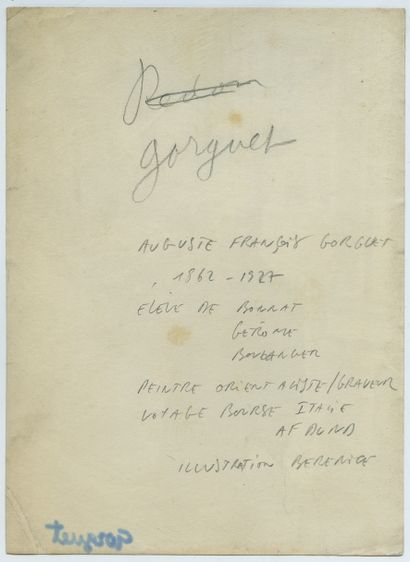 Redon
Gorguet
AUGUSTE FRANÇOIS GORGUET
, 1862 - 1927
ELÈVE DE BONNAT
GÉROME
BOULANGER
PEINTRE ORIENTALISTE/GRAVEUR
VOYAGE BOURSE ITALIE
AF DU ND
ILLUSTRATION BERENICE
Gorguet